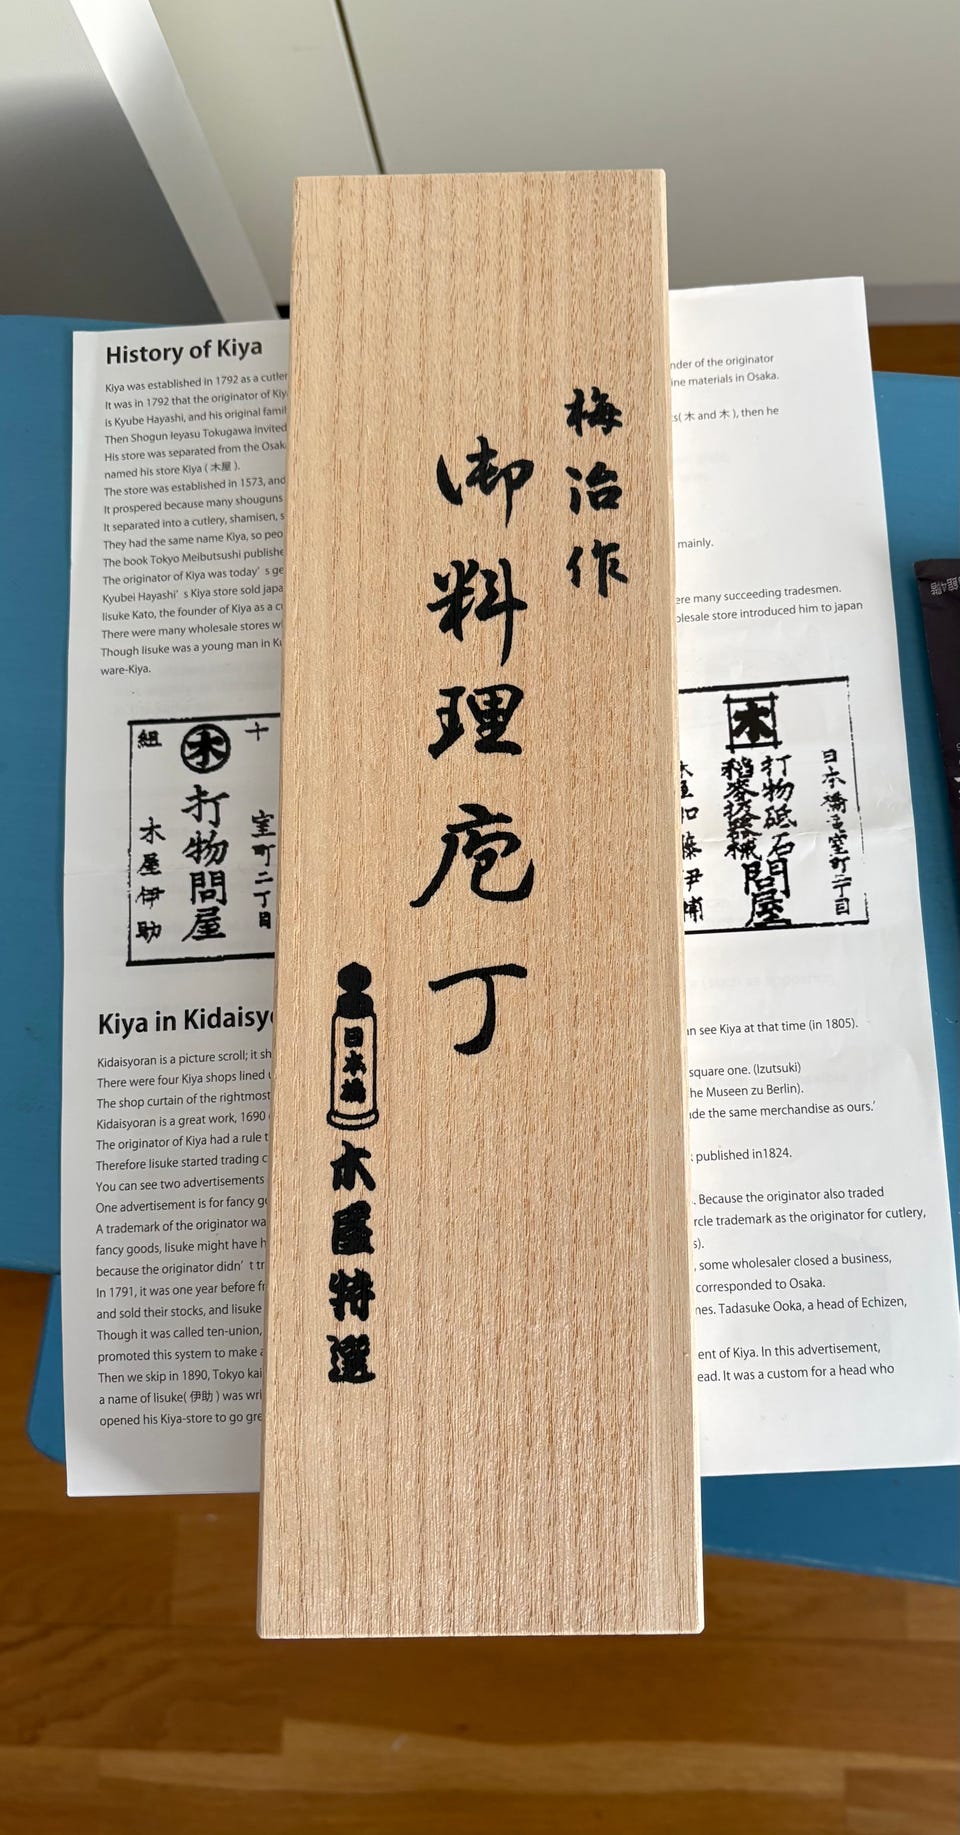 梅治作
御料理庖丁
日本橋
木屋特選
History of Kiya
Kiya was established in 1792 as a cutler
It was in 1792 that the originator of Kiy
is Kyube Hayashi, and his original famil
Then Shogun Ieyasu Tokugawa invited
His store was separated from the Osak
named his store Kiya ( 木屋 ).
The store was established in 1573, and
It prospered because many shouguns
It separated into a cutlery, shamisen, s
They had the same name Kiya, so peo
The book Tokyo Meibutsushi publishe
The originator of Kiya was today' s ge
Kyubei Hayashi' s Kiya store sold japa
Iisuke Kato, the founder of Kiya as a c
There were many wholesale stores w
Though Iisuke was a young man in K
ware-Kiya.
nder of the originator
ine materials in Osaka.
s( 木 and 木 ), then he
mainly.
ere many succeeding tradesmen.
olesale store introduced him to japan
十
室町二丁目
木
打物問屋
組
木屋伊助
日本橋室町二丁目
木
打物砥石
問屋
Kiya in Kidaisy
Kidaisyoran is a picture scroll; it sh
There were four Kiya shops lined
The shop curtain of the rightmost
Kidaisyoran is a great work, 1690
The originator of Kiya had a rule t
Therefore Iisuke started trading c
You can see two advertisements
One advertisement is for fancy g
A trademark of the originator wa
fancy goods, Iisuke might have h
because the originator didn' t tr
In 1791, it was one year before fr
and sold their stocks, and Iisuke
Though it was called ten-union,
promoted this system to make a
Then we skip in 1890, Tokyo kai
a name of Iisuke( 伊助 ) was wri
opened his Kiya-store to go gre
n see Kiya at that time (in 1805).
square one. (Izutsuki)
he Museen zu Berlin).
de the same merchandise as ours.'
published in1824.
. Because the originator also traded
rcle trademark as the originator for cutlery,
s).
, some wholesaler closed a business,
corresponded to Osaka.
nes. Tadasuke Ooka, a head of Echizen,
ent of Kiya. In this advertisement,
ead. It was a custom for a head who